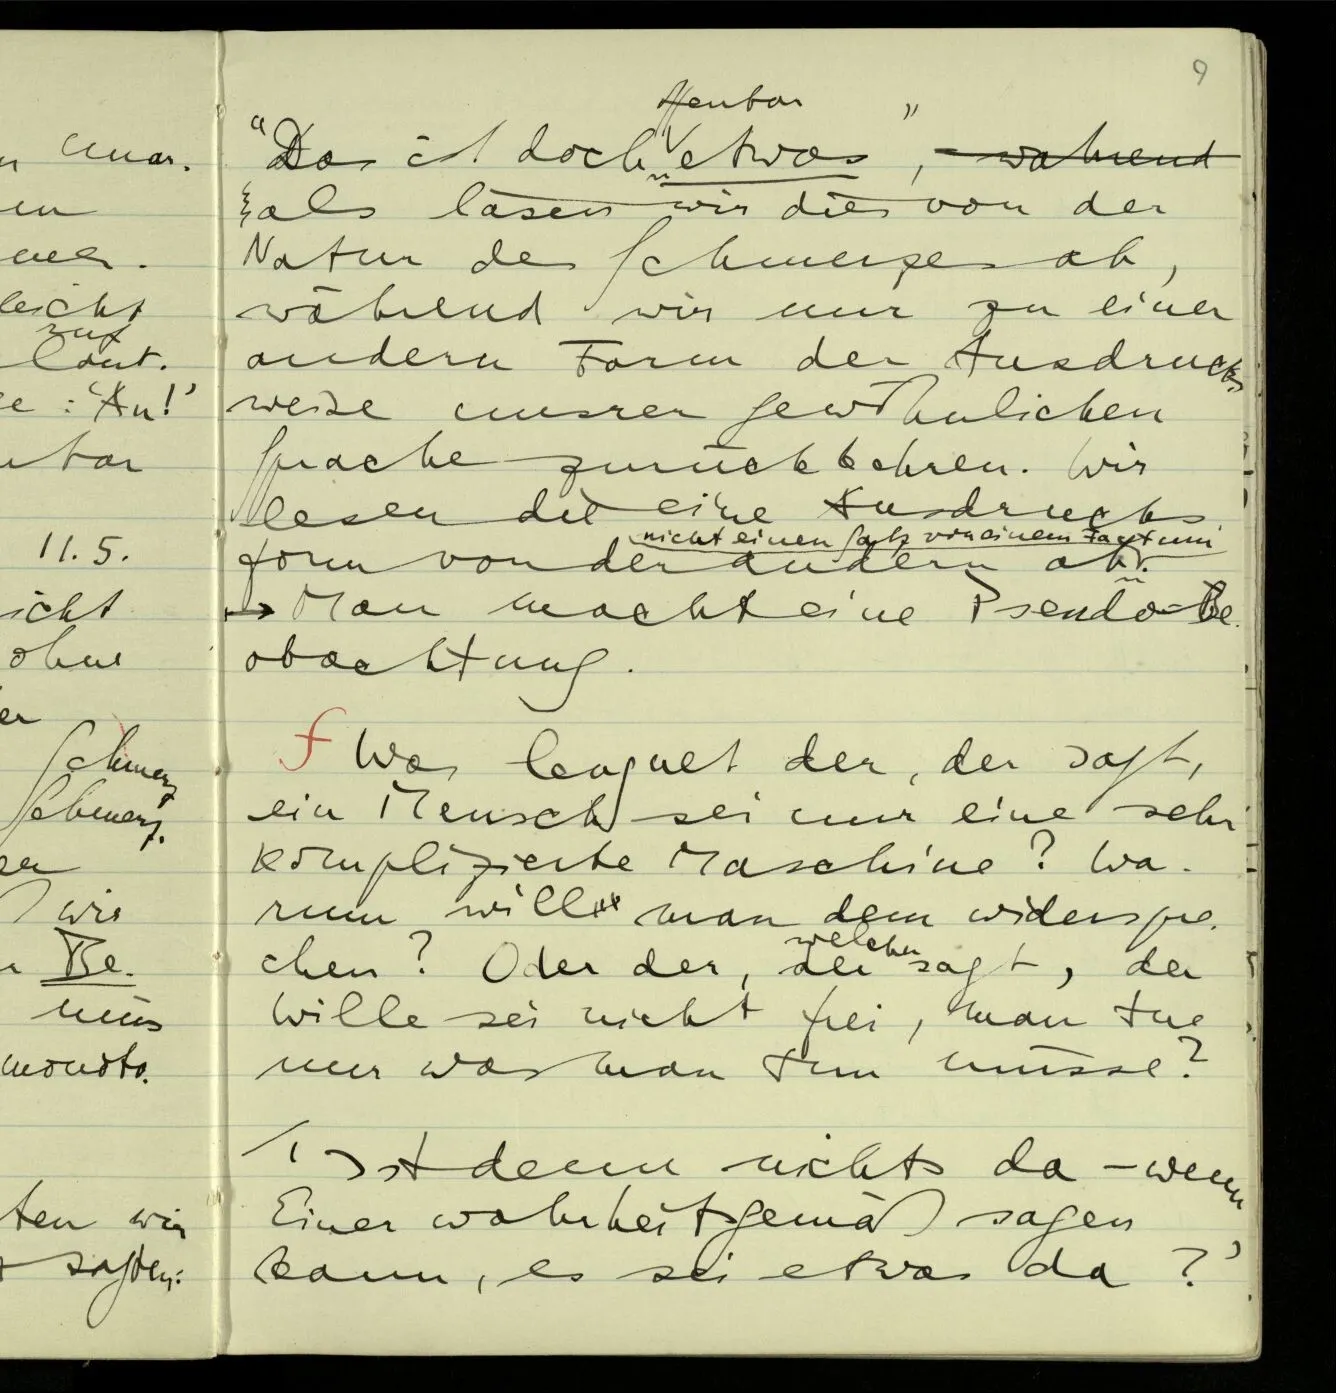 9
offenbar
"Da ist doch etwas", während
als läsen wir dies von der
Natur des Schmerzes ab,
während wir nur zu einer
andern Form der Ausdrucks
weise unsrer gewöhnlichen
Sprache zurückkehren. Wir
lesen die eine Ausdrucks
nicht einen Satz von einem Faktum
form von der andern ab.
→ Man macht eine Pseudo-Be.
obachtung.
∫ Was leugnet der, der sagt,
ein Mensch sei nur eine sehr
komplizierte Maschine? Wa.
rum will man dem widerspre.
welcher
chen? Oder der, der sagt, der
Wille sei nicht frei, man tue
nur was man tun müsse?
'Ist denn nichts da – wenn
Einer wahrheitsgemäß sagen
kann, es sei etwas da?'
leicht
zuf
laut.
: 'Au!'
11.5.
icht
ohne
er
Schmerz
Schmerz.
wir
Be.
muss
monoto.
ten wir
sagten: